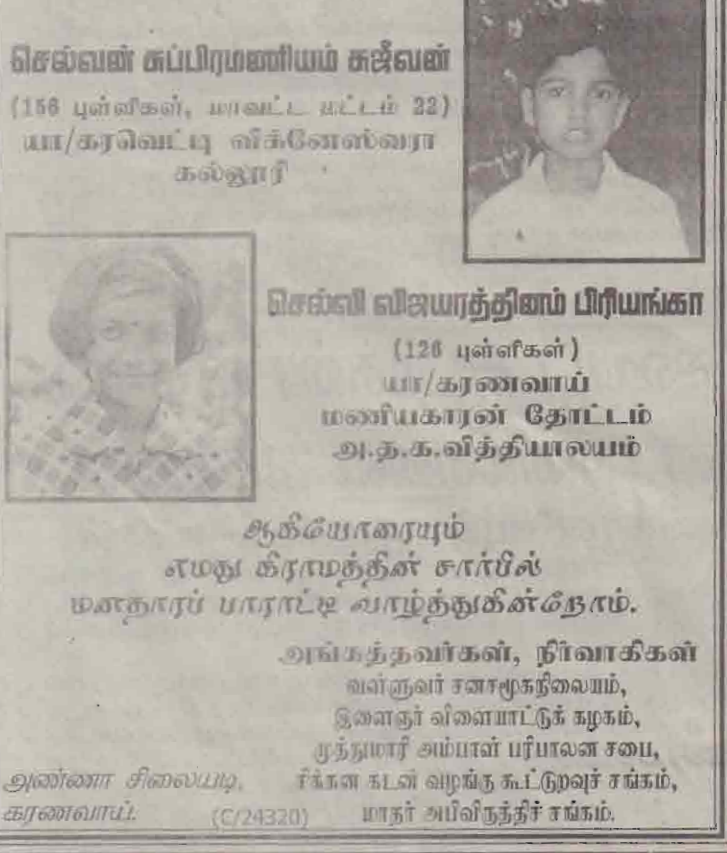 செல்வன் சுப்பிரமணியம் சுஜீவன்
(156 புள்ளிகள், மாவட்ட மட்டம் 22)
யா/கரவெட்டி விக்னேஸ்வரா
கல்லூரி
செல்வி விஜயரத்தினம் பிரியங்கா
(126 புள்ளிகள்)
யா/கரணவாய்
மணியகாரன் தோட்டம்
அ.த.க.வித்தியாலயம்
ஆகியோரையும்
எமது கிராமத்தின் சார்பில்
மனதாரப் பாராட்டி வாழ்த்துகின்றோம்.
அங்கத்தவர்கள், நிர்வாகிகள்
வள்ளுவர் சனசமூகநிலையம்,
இளைஞர் விளையாட்டுக் கழகம்,
முத்துமாரி அம்பாள் பரிபாலன சபை,
சிக்கன கடன் வழங்கு கூட்டுறவுச் சங்கம்,
மாதர் அபிவிருத்திச் சங்கம்.
அண்ணா சிலையடி,
கரணவாய்.
(C/24320)